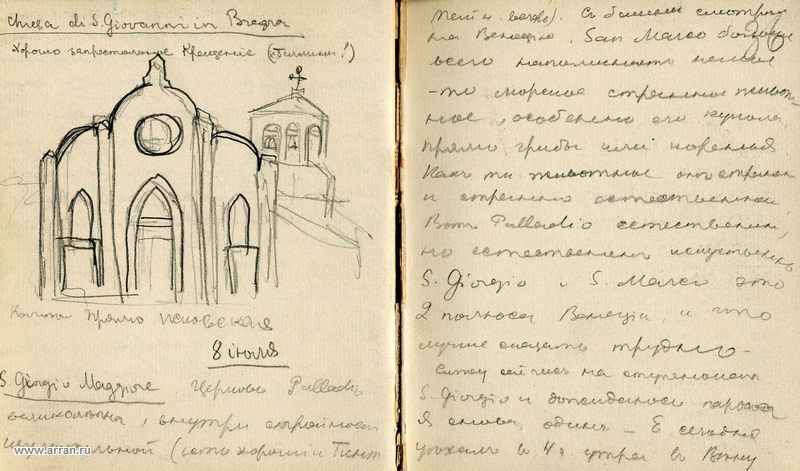 Chiesa di S. Giovanni in Bragra
Хорошо запрестольное Крещение (Беллини!)
прямо псковская
8 іюля
S. Giorgio Maggiore Церковь Palladio
великолепна, внутри стройности
(есть хороший Тинт
www.arran.ru
смотрел
на Венецію. San Marco больше
всего напоминает
-то морское странное живот
ное, особенно его купола,
прямо грибы или
Какъ животные оно странно
и странно естественно
Вотъ Palladio естественен,
но естественен
S. Giorgio и S. Marco это
2 полюса Венеціи, и что
лучше сказать трудно –
на ступеньках
S. Giorgio и дожидаюсь парохода
Я снова один – Е. сегодня
уехал в 4 ч утра в Вену